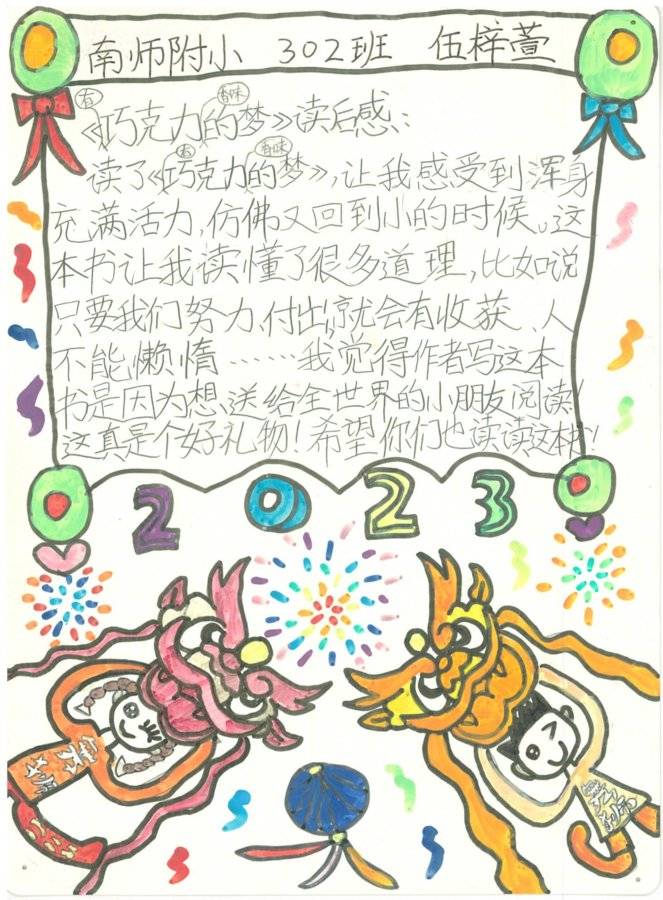 南师附小 302班 伍梓萱
《有巧克力香味的梦》读后感：
读了《有巧克力香味的梦》,让我感受到浑身
充满活力,仿佛又回到小的时候。这
本书让我读懂了很多道理,比如说
只要我们努力、付出,就会有收获、人
不能懒惰……我觉得作者写这本
书是因为想送给全世界的小朋友阅读!
这真是个好礼物!希望你们也读读这本书!
2023